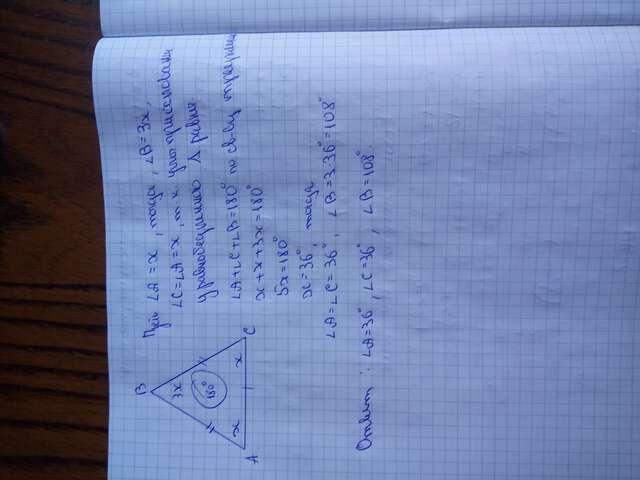 B
3x
180°
x
x
A
C
Пусть ∠A = x, тогда, ∠B = 3x,
∠C = ∠A = x, т. к. углы при основании
у равнобедренного Δ равны.
∠A+∠C+∠B=180° по св-ву
x+x+3x=180°
5x=180°
x=36°, тогда
∠A=∠C=36°, ∠B=3·36°=108°
Ответ: ∠A=36°, ∠C=36°, ∠B=108°.